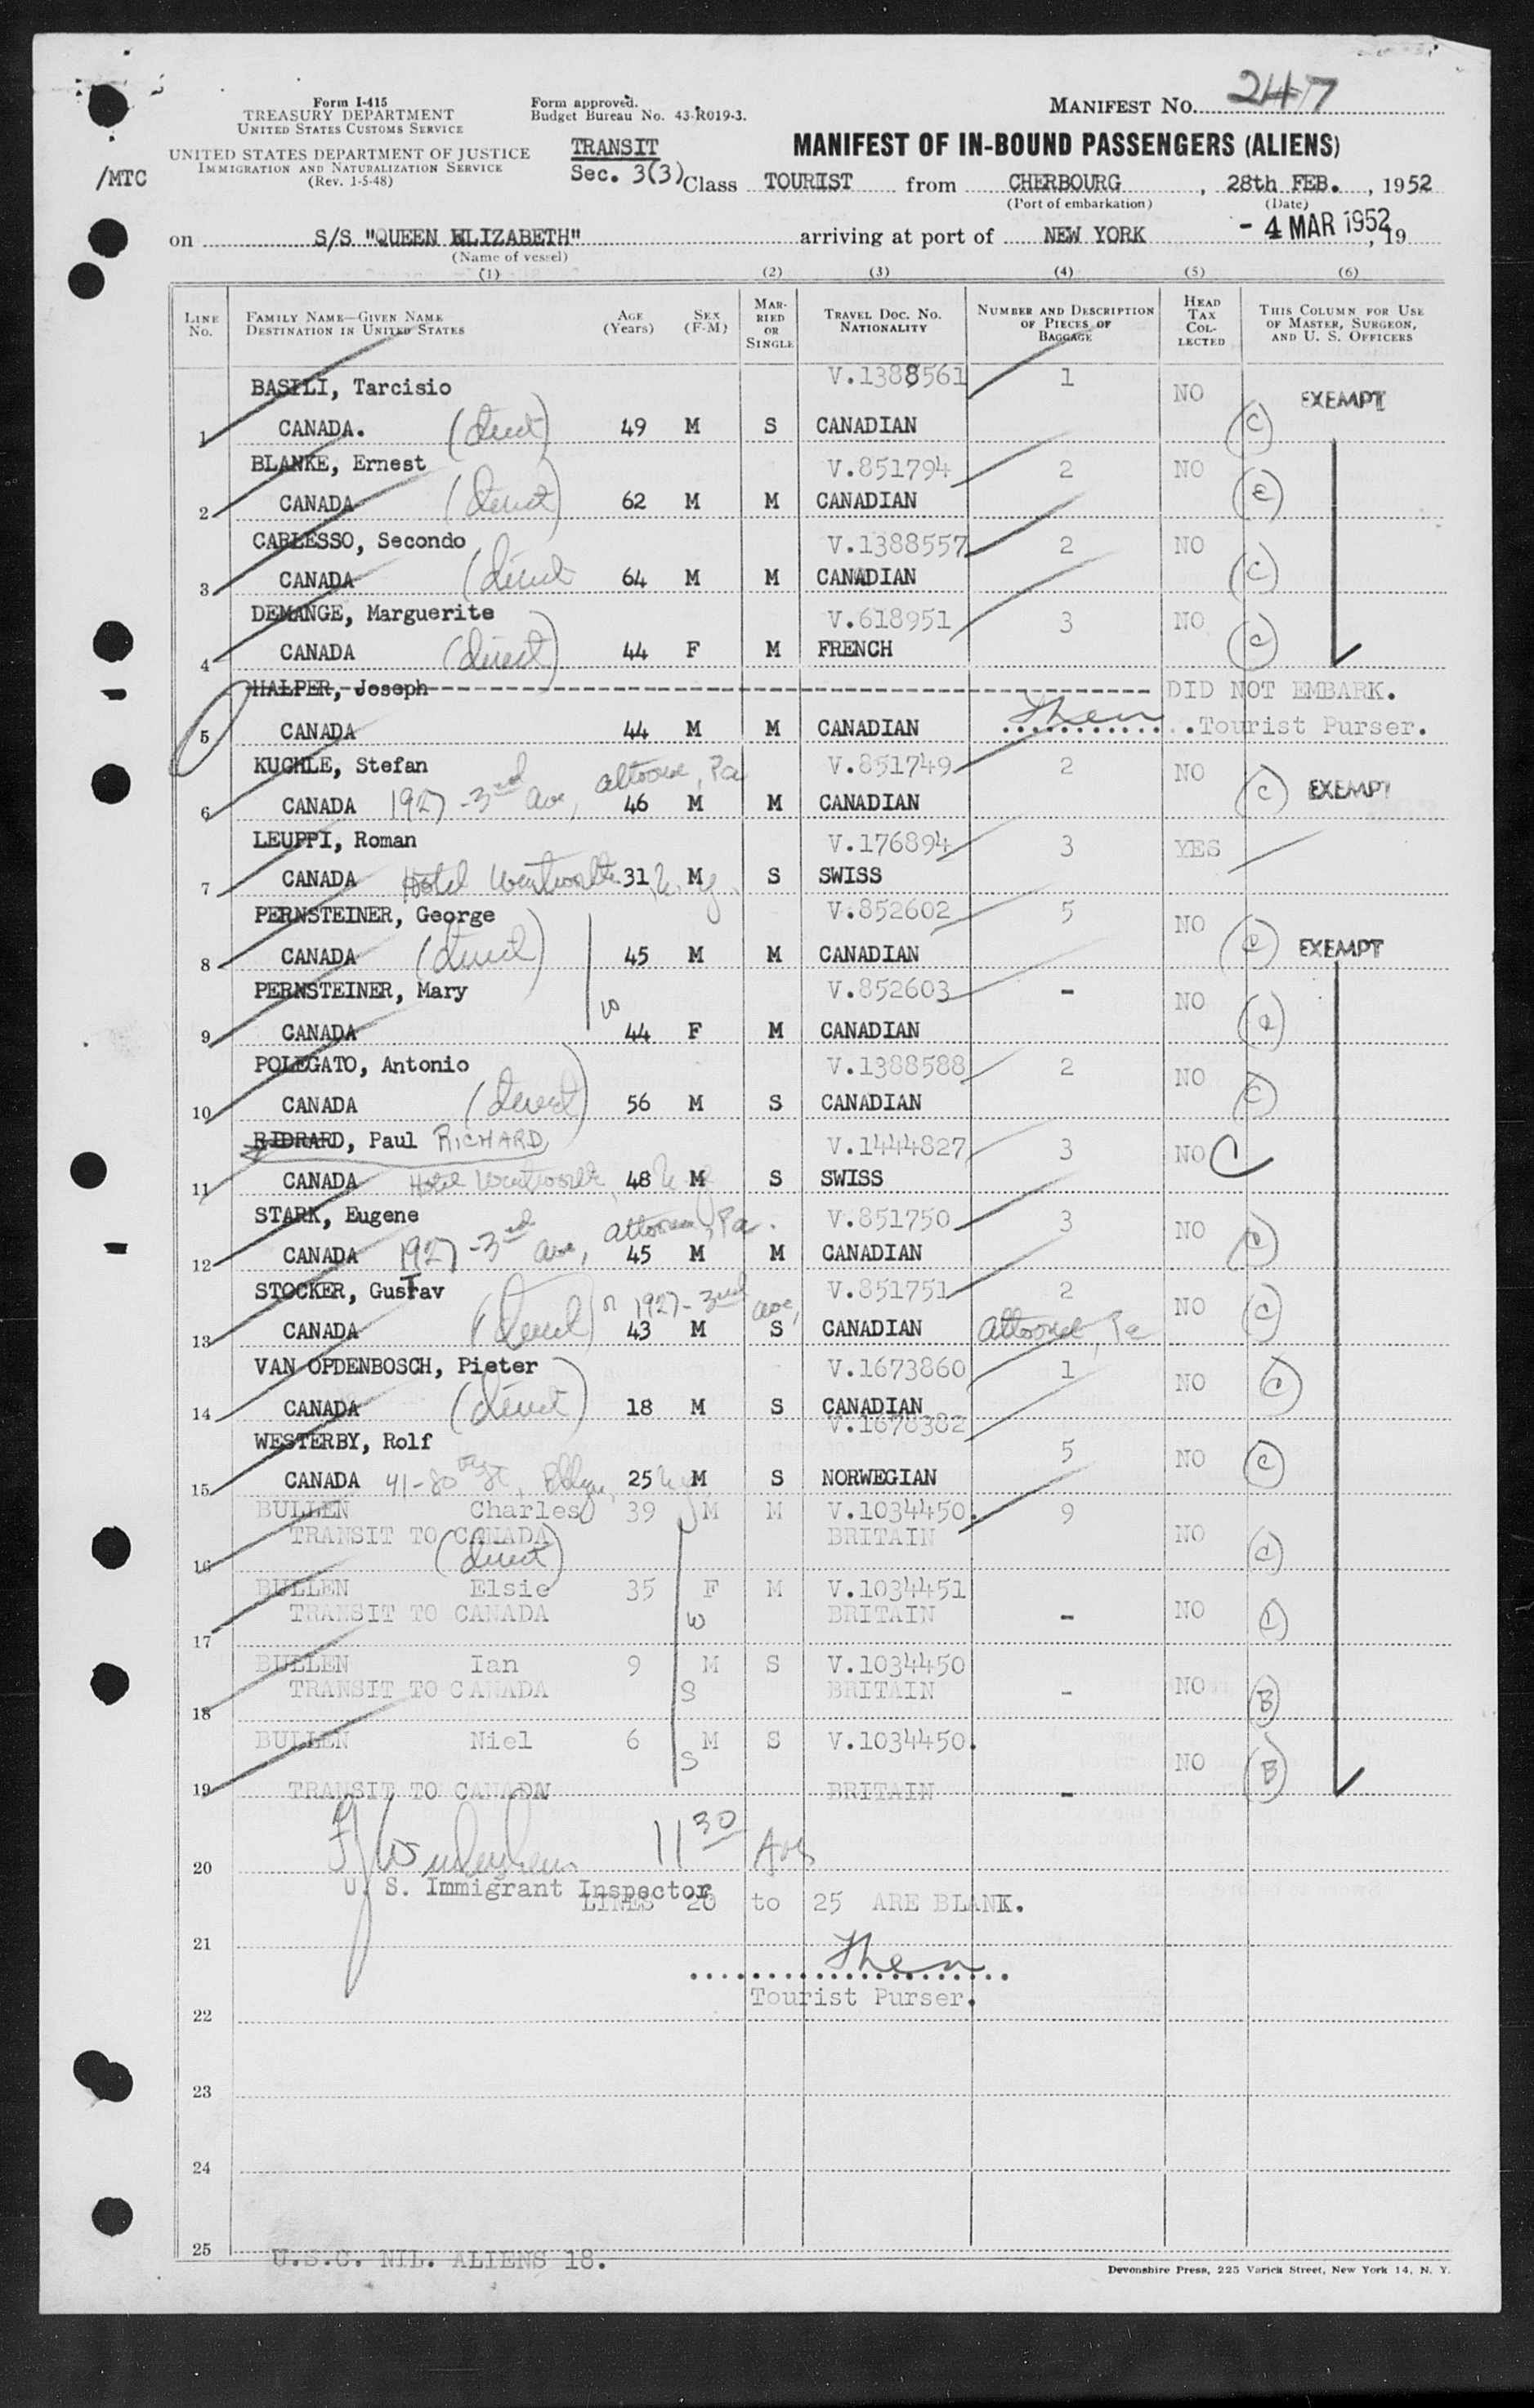 MANIFEST NO. 247
Form I-415
TREASURY DEPARTMENT
UNITED STATES CUSTOMS SERVICE
UNITED STATES DEPARTMENT OF JUSTICE
IMMIGRATION AND NATURALIZATION SERVICE
(Rev. 1-5-48)
/MTC
Form approved.
Budget Bureau No. 43-R019-3.
MANIFEST OF IN-BOUND PASSENGERS (ALIENS)
TRANSIT
Sec. 3(3) Class TOURIST from CHERBOURG, 28th FEB., 1952
(Port of embarkation) (Date)
on S/S "QUEEN ELIZABETH" arriving at port of NEW YORK - 4 MAR 1952, 19
(Name of vessel)
(1) (2) (3) (4) (5) (6)
LINE No. FAMILY NAME—GIVEN NAME DESTINATION IN UNITED STATES AGE (Years) SEX (F-M) MARRIED OR SINGLE TRAVEL DOC. NO. NATIONALITY NUMBER AND DESCRIPTION OF PIECES OF BAGGAGE HEAD TAX COLLECTED THIS COLUMN FOR USE OF MASTER, SURGEON, AND U. S. OFFICERS
BASILI, Tarcisio V.1388561 1 NO EXEMPT
1 CANADA. (direct) 49 M S CANADIAN (C)
BLANKE, Ernest V.851794 2 NO
2 CANADA (direct) 62 M M CANADIAN (C)
CARLESSO, Secondo V.1388557 2 NO
3 CANADA (direct 64 M M CANADIAN (C)
DEMANGE, Marguerite V.618951 3 NO
4 CANADA (direct) 44 F M FRENCH (C)
HALPER, Joseph DID NOT EMBARK.
5 CANADA 44 M M CANADIAN Tourist Purser.
KUCHLE, Stefan V.851749 2 NO
6 CANADA 1927 - 3rd Ave, Altoona, Pa 46 M M CANADIAN (C) EXEMPT
LEUPPI, Roman V.176894 3 YES
7 CANADA Hotel Wentworth, N.Y. 31 M S SWISS
PERNSTEINER, George V.852602 5 NO
8 CANADA (direct) 45 M M CANADIAN EXEMPT
PERNSTEINER, Mary V.852603 - NO
9 CANADA W 44 F M CANADIAN
POLEGATO, Antonio V.1388588 2 NO
10 CANADA (direct) 56 M S CANADIAN (C)
RIDRARD, Paul RICHARD V.1444827 3 NO C
11 CANADA Hotel Wentworth, N.Y. 48 M S SWISS
STARK, Eugene V.851750 3 NO
12 CANADA 1927 - 3rd Ave, Altoona, Pa. 45 M M CANADIAN
STOCKER, Gustav V.851751 2 NO
13 CANADA (direct) or 1927 - 3rd Ave, Altoona, Pa 43 M S CANADIAN (C)
VAN OPDENBOSCH, Pieter V.1673860 1 NO
14 CANADA (direct) 18 M S CANADIAN
WESTERBY, Rolf V.1678382 5 NO
15 CANADA 41-80th St, Bklyn, N.Y. 25 M S NORWEGIAN (C)
BULLEN Charles 39 M M V.1034450. 9 NO
16 TRANSIT TO CANADA (direct) BRITAIN
BULLEN Elsie 35 F M V.1034451
17 TRANSIT TO CANADA W BRITAIN - NO
BULLEN Ian 9 M S V.1034450
18 TRANSIT TO CANADA S BRITAIN - NO (B)
BULLEN Niel 6 M S V.1034450.
19 TRANSIT TO CANADA S BRITAIN - NO (B)
20 11 30
U. S. Immigrant Inspector
LINES 20 to 25 ARE BLANK.
21
Tourist Purser.
22
23
24
25
U.S.C. NIL. ALIENS 18.
Devonshire Press, 225 Varick Street, New York 14, N. Y.